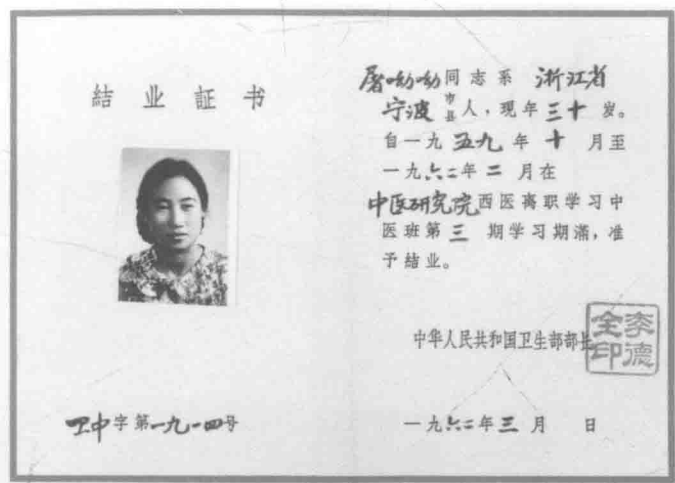 結业証书
卫中字第一九一四号
屠呦呦同志系 浙江省
宁波市县人，现年三十岁。
自一九五九年十月至
一九六二年二月在
中医研究院西医离职学习中
医班第三期学习期满，准
予结业。
中华人民共和国卫生部部长
李德全印
一九六二年三月 日